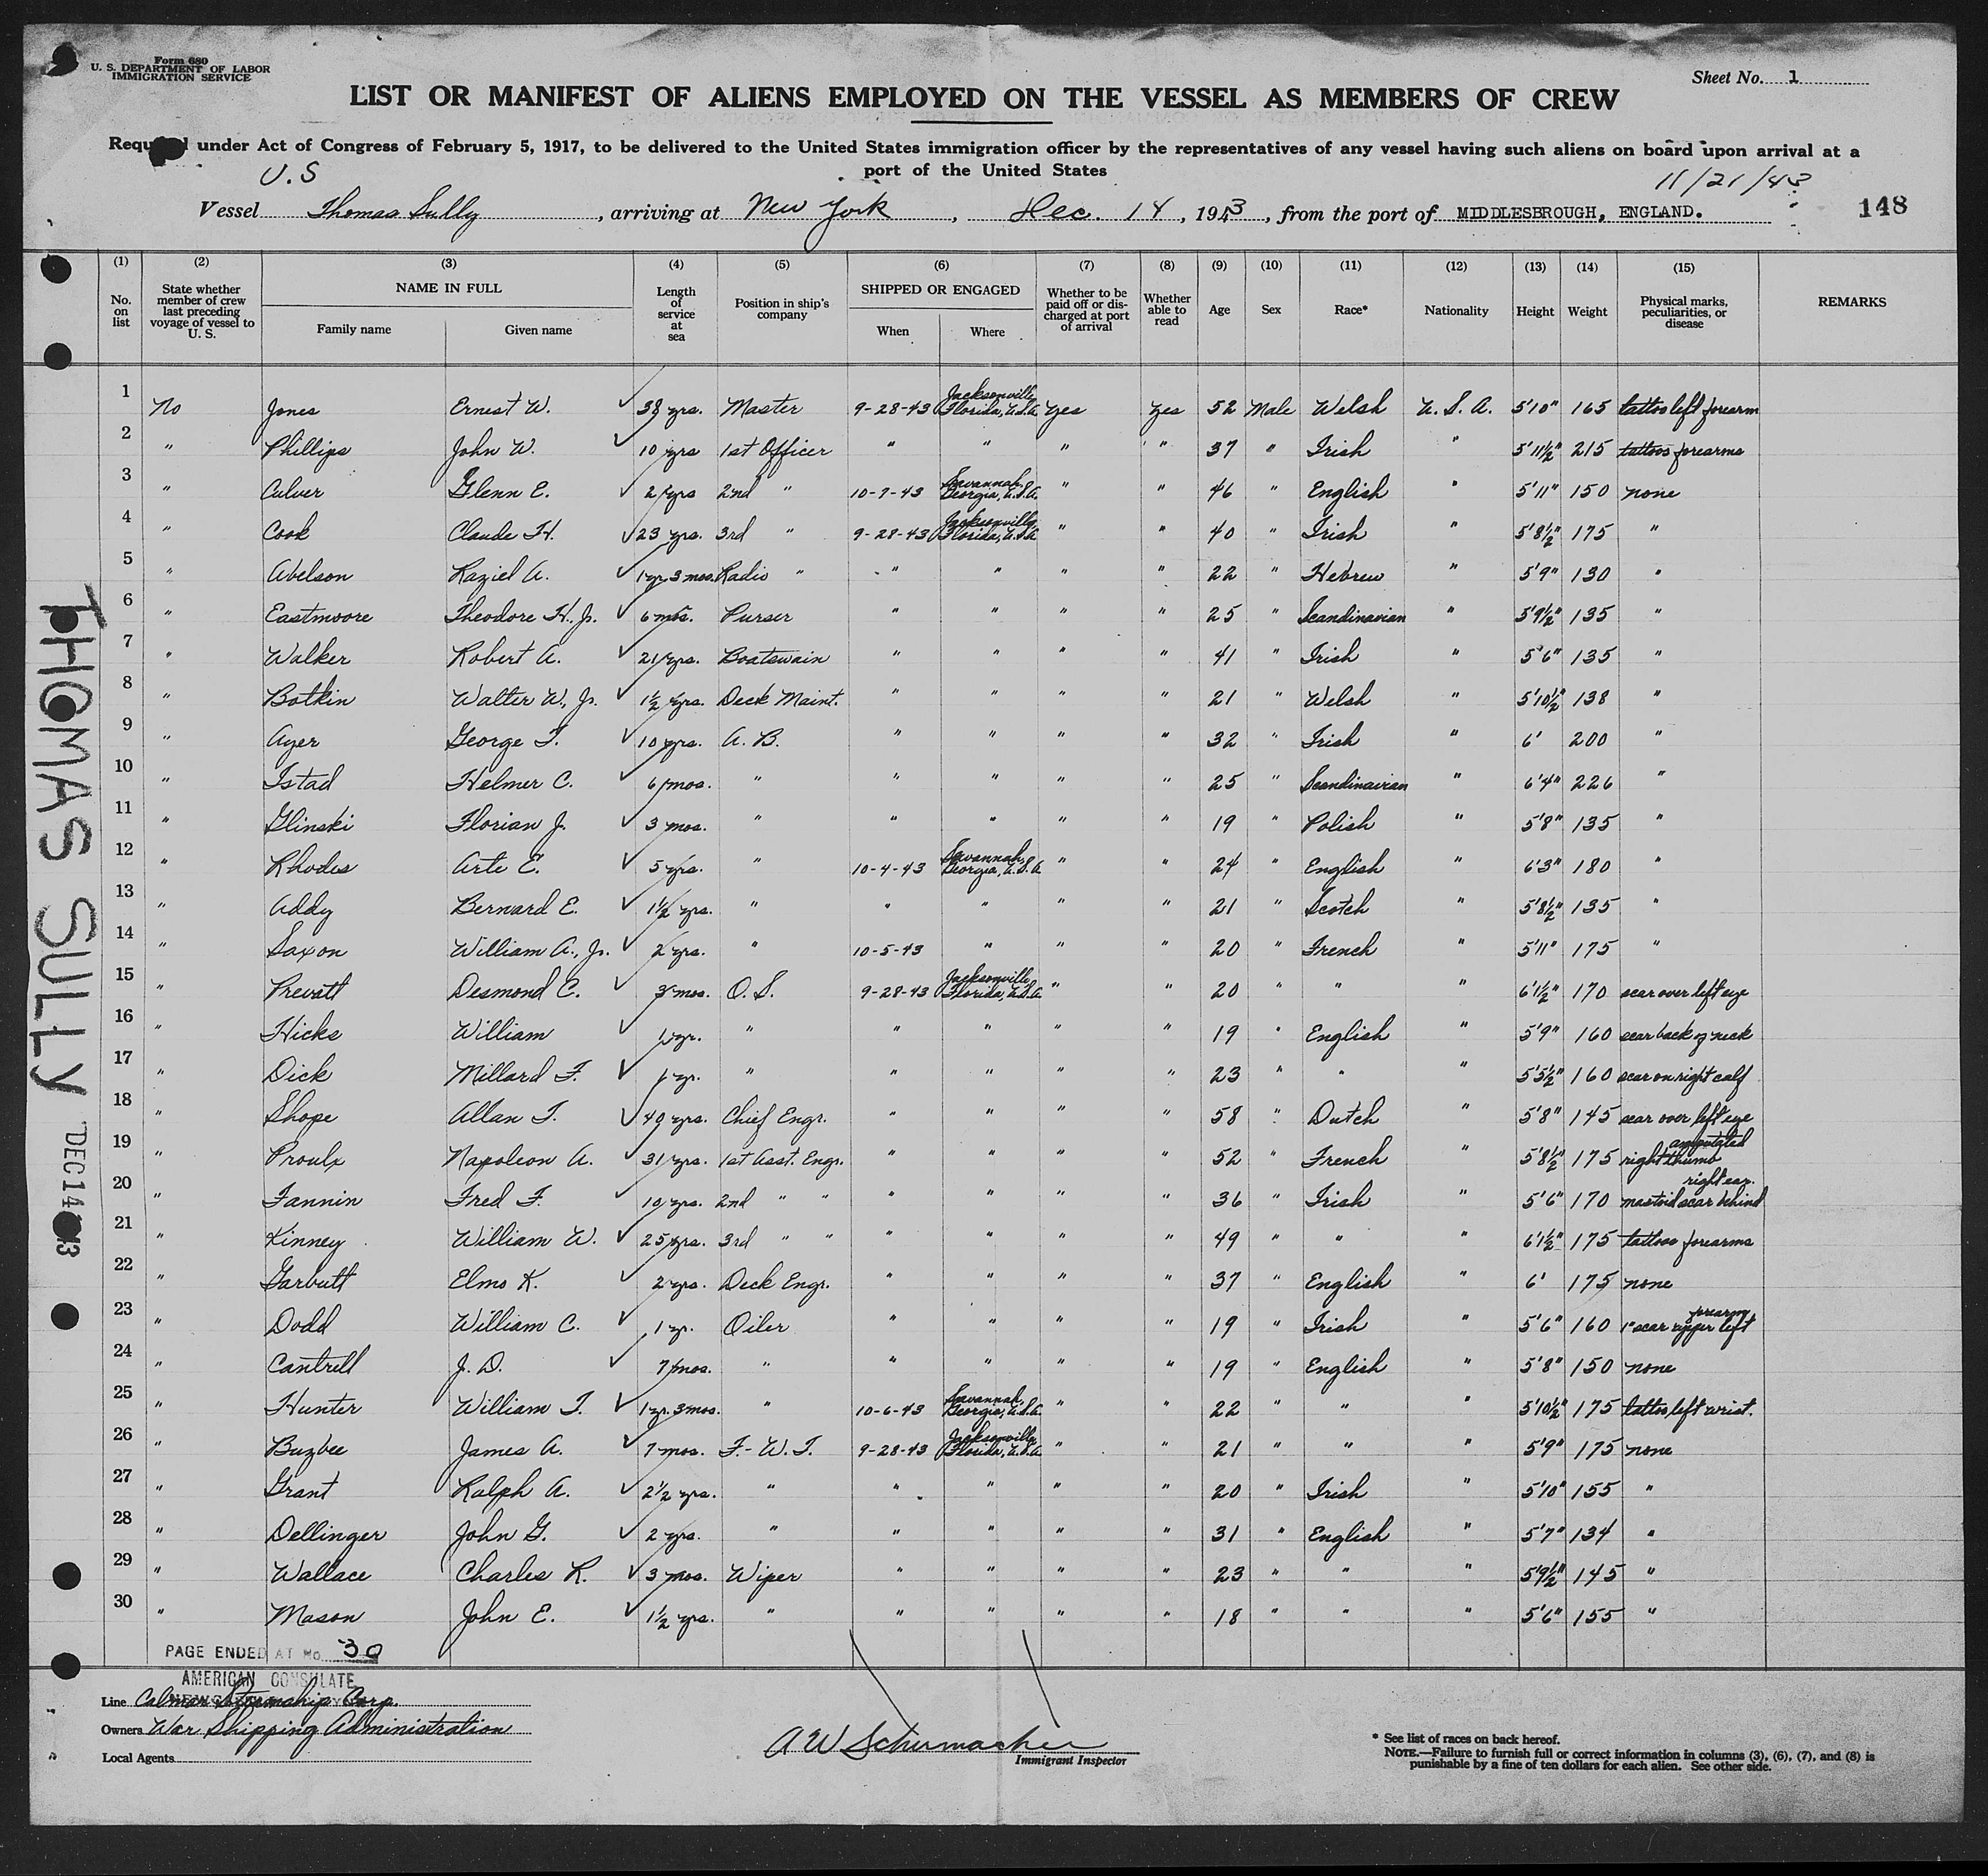 Form 680
U. S. DEPARTMENT OF LABOR
IMMIGRATION SERVICE
Sheet No. 1
LIST OR MANIFEST OF ALIENS EMPLOYED ON THE VESSEL AS MEMBERS OF CREW
under Act of Congress of February 5, 1917, to be delivered to the United States immigration officer by the representatives of any vessel having such aliens on board upon arrival at a
port of the United States
U.S 11/21/43
Vessel Thomas Sully, arriving at New York, Dec. 14, 1943, from the port of MIDDLESBROUGH, ENGLAND. 148
(1) (2) (3) (4) (5) (6) (7) (8) (9) (10) (11) (12) (13) (14) (15)
No. on list State whether member of crew last preceding voyage of vessel to U. S. NAME IN FULL Family name Given name Length of service at sea Position in ship's company SHIPPED OR ENGAGED When Where Whether to be paid off or discharged at port of arrival Whether able to read Age Sex Race* Nationality Height Weight Physical marks, peculiarities, or disease REMARKS
1 No Jones Ernest W. 38 yrs. Master 9-28-43 Jacksonville, Florida, U.S.A. Yes Yes 52 Male Welsh U. S. A. 5'10" 165 tattoo left forearm
2 " Phillips John W. 10 yrs 1st Officer " " " " 37 " Irish " 5'11½" 215 tattoos forearms
3 " Culver Glenn E. 2 yrs 2nd " 10-7-43 Savannah, Georgia, U.S.A. " " 46 " English " 5'11" 150 none
4 " Cook Claude H. 23 yrs. 3rd " 9-28-43 Jacksonville, Florida, U.S.A " " 40 " Irish " 5'8½" 175 "
5 " Abelson Raziel A. 1 yr. 3 mos. Radio " " " " " 22 " Hebrew " 5'9" 130 "
6 " Eastmoore Theodore H., Jr. 6 mos. Purser " " " " 25 " Scandinavian " 5'9½" 135 "
7 " Walker Robert A. 21 yrs. Boatswain " " " " 41 " Irish " 5'6" 135 "
8 " Botkin Walter W., Jr. 1½ yrs. Deck Maint. " " " " 21 " Welsh " 5'10½" 138 "
9 " Ayer George T. 10 yrs. A. B. " " " " 32 " Irish " 6' 200 "
10 " Istad Helmer C. 6 mos. " " " " " 25 " Scandinavian " 6'4" 226 "
11 " Glinski Florian J. 3 mos. " " " " " 19 " Polish " 5'8" 135 "
12 " Rhodes Arte E. 5 yrs. " 10-4-43 Savannah, Georgia, U.S.A " " 24 " English " 6'3" 180 "
13 " Addy Bernard E. 1½ yrs. " " " " " 21 " Scotch " 5'8½" 135 "
14 " Saxon William A., Jr. 2 yrs. " 10-5-43 " " " 20 " French " 5'11" 175 "
15 " Prevatt Desmond C. 3 mos. O. S. 9-28-43 Jacksonville, Florida, U.S.A. " " 20 " " " 6'1½" 170 scar over left eye
16 " Hicks William 1 yr. " " " " " 19 " English " 5'9" 160 scar back of neck
17 " Dick Millard F. 1 yr. " " " " " 23 " " " 5'5½" 160 scar on right calf
18 " Shope Allan T. 40 yrs. Chief Engr. " " " " 58 " Dutch " 5'8" 145 scar over left eye
19 " Proulx Napoleon A. 31 yrs. 1st Asst. Engr. " " " " 52 " French " 5'8½" 175 right thumb amputated
20 " Fannin Fred F. 10 yrs. 2nd " " " " " " 36 " Irish " 5'6" 170 mastoid scar behind right ear.
21 " Kinney William W. 25 yrs. 3rd " " " " " " 49 " " " 6'1½" 175 tattoos forearms
22 " Garbutt Elmo K. 2 yrs. Deck Engr. " " " " 37 " English " 6' 175 none
23 " Dodd William C. 1 yr. Oiler " " " " 19 " Irish " 5'6" 160 1" scar upper left forearm
24 " Cantrell J. D. 7 mos. " " " " " 19 " English " 5'8" 150 none
25 " Hunter William T. 1 yr. 3 mos. " 10-6-43 Savannah, Georgia, U.S.A. " " 22 " " " 5'10½" 175 tattoo left wrist.
26 " Buzbee James A. 7 mos. F.-W. T. 9-28-43 Jacksonville, Florida, U.S.A " " 21 " " " 5'9" 175 none
27 " Grant Ralph A. 2½ yrs. " " " " " 20 " Irish " 5'10" 155 "
28 " Dellinger John G. 2 yrs. " " " " " 31 " English " 5'7" 134 "
29 " Wallace Charles R. 3 mos. Wiper " " " " 23 " " " 5'9½" 145 "
30 " Mason John E. 1½ yrs. " " " " " 18 " " " 5'6" 155 "
PAGE ENDED AT No. 30
AMERICAN CONSULATE
Line Calmar Steamship Corp.
Owners War Shipping Administration
Local Agents
A W Schumacher
Immigrant Inspector
* See list of races on back hereof.
NOTE.—Failure to furnish full or correct information in columns (3), (6), (7), and (8) is
punishable by a fine of ten dollars for each alien. See other side.
THOMAS SULLY DEC 14